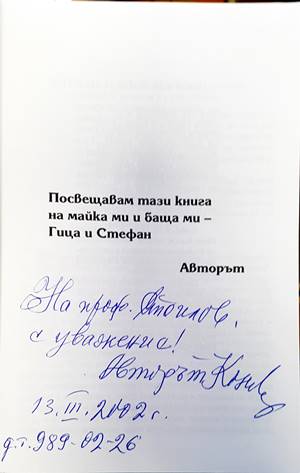 Посвещавам тази книга
на майка ми и баща ми –
Гица и Стефан
Авторът
На проф. Стоилов,
с уважение!
Авторът
13. III. 2002 г.
д.т. 989-02-26